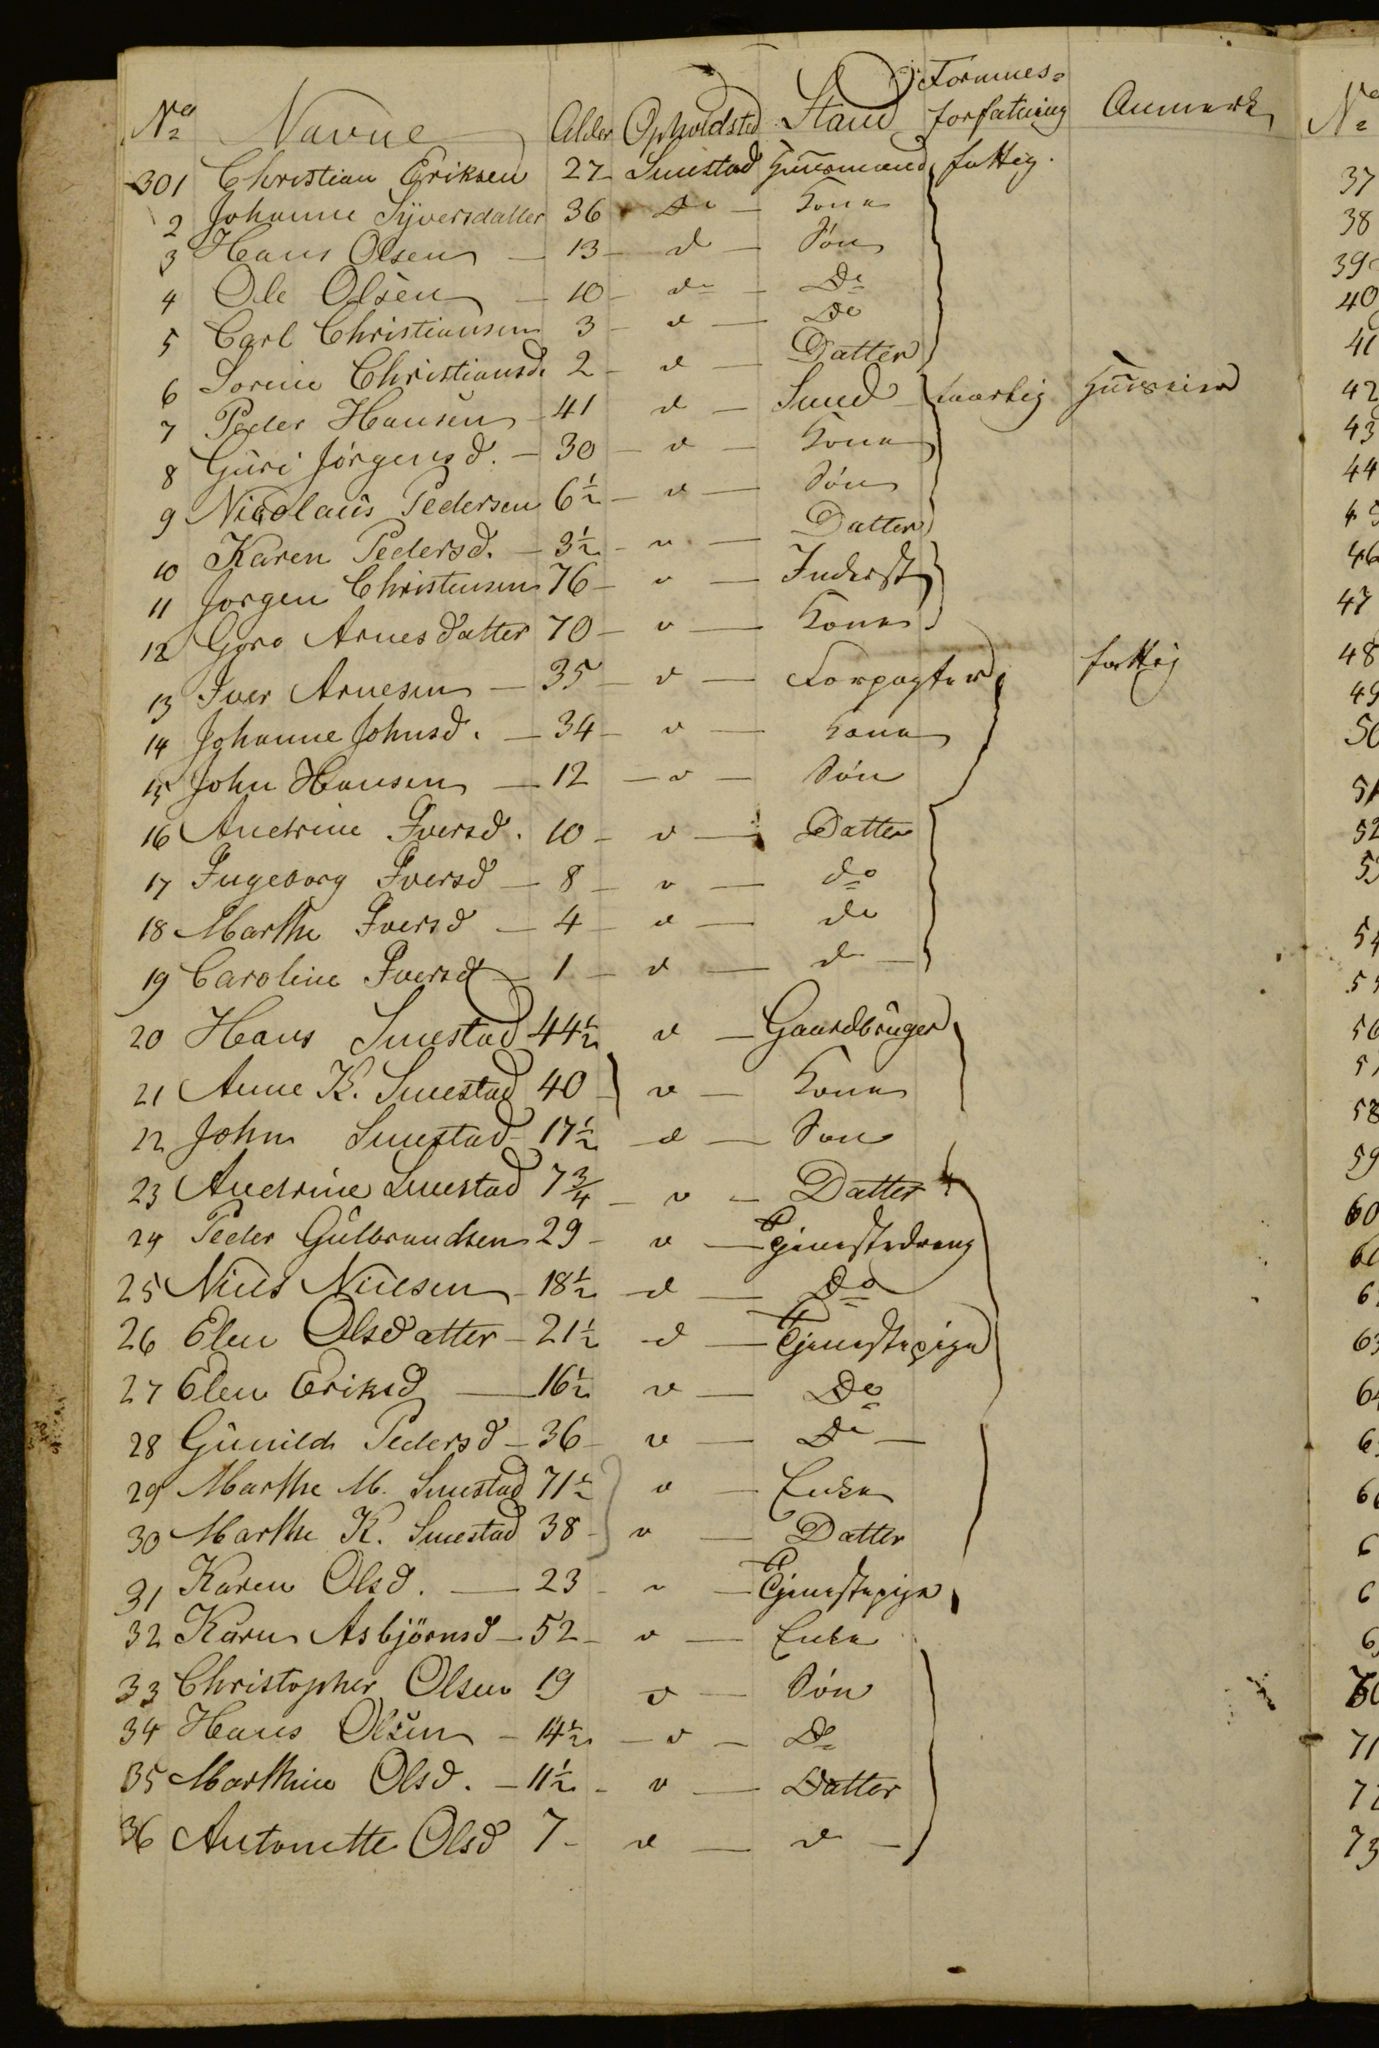 No Navne Alder Opholdsted Stand Formues= forfatning Anmærk
301 Christian Eriksen 27 Smestad Huusmand fattig.
2 Johanne Syversdatter 36 Do Kone
3 Hans Olsen 13 d Søn
4 Ole Olsen 10 do Do
5 Carl Christiansen 3 d Do
6 Sorine Christiansd. 2 d Datter
7 Peder Hansen 41 d Smed
8 Guri Jørgensd. 30 d Kone
9 Nicolaus Pedersen 6½ d Søn
10 Karen Pedersd. 3½ d Datter
11 Jørgen Christensen 76 d Inderst
12 Goro Arnesdatter 70 d Kone
13 Iver Arnesen 35 d Forpagter fattig
14 Johanne Johnsd. 34 d Kone
15 John Hansen 12 d Søn
16 Andrine Iversd. 10 d Datter
17 Ingeborg Iversd 8 d do
18 Marthe Iversd 4 d do
19 Caroline Iversd 1 d d
20 Hans Smestad 44½ d Gaardbruger
21 Anne K. Smestad 40 d Kone
22 John Smestad 17½ d Søn
23 Andrine Smestad 7¾ d Datter
24 Peder Gulbrandsen 29 d Tjenestedreng
25 Niels Nielsen 18½ d Do
26 Elen Olsdatter 21½ d Tjenestepige
27 Elen Eriksd 16½ d Do
28 Gunild Pedersd 36 d Do
29 Marthe M. Smestad 71½ d Enke
30 Marthe K. Smestad 38 d Datter
31 Karen Olsd. 23 d Tjenestepige
32 Karen Asbjørnsd 52 d Enke
33 Christopher Olsen 19 d Søn
34 Hans Olsen 14½ d Do
35 Marthine Olsd. 11½ d Datter
36 Antonette Olsd 7 d d
No
37
38
39
40
41
42
43
44
45
46
47
48
49
50
51
52
53
54
55
56
57
58
59
60